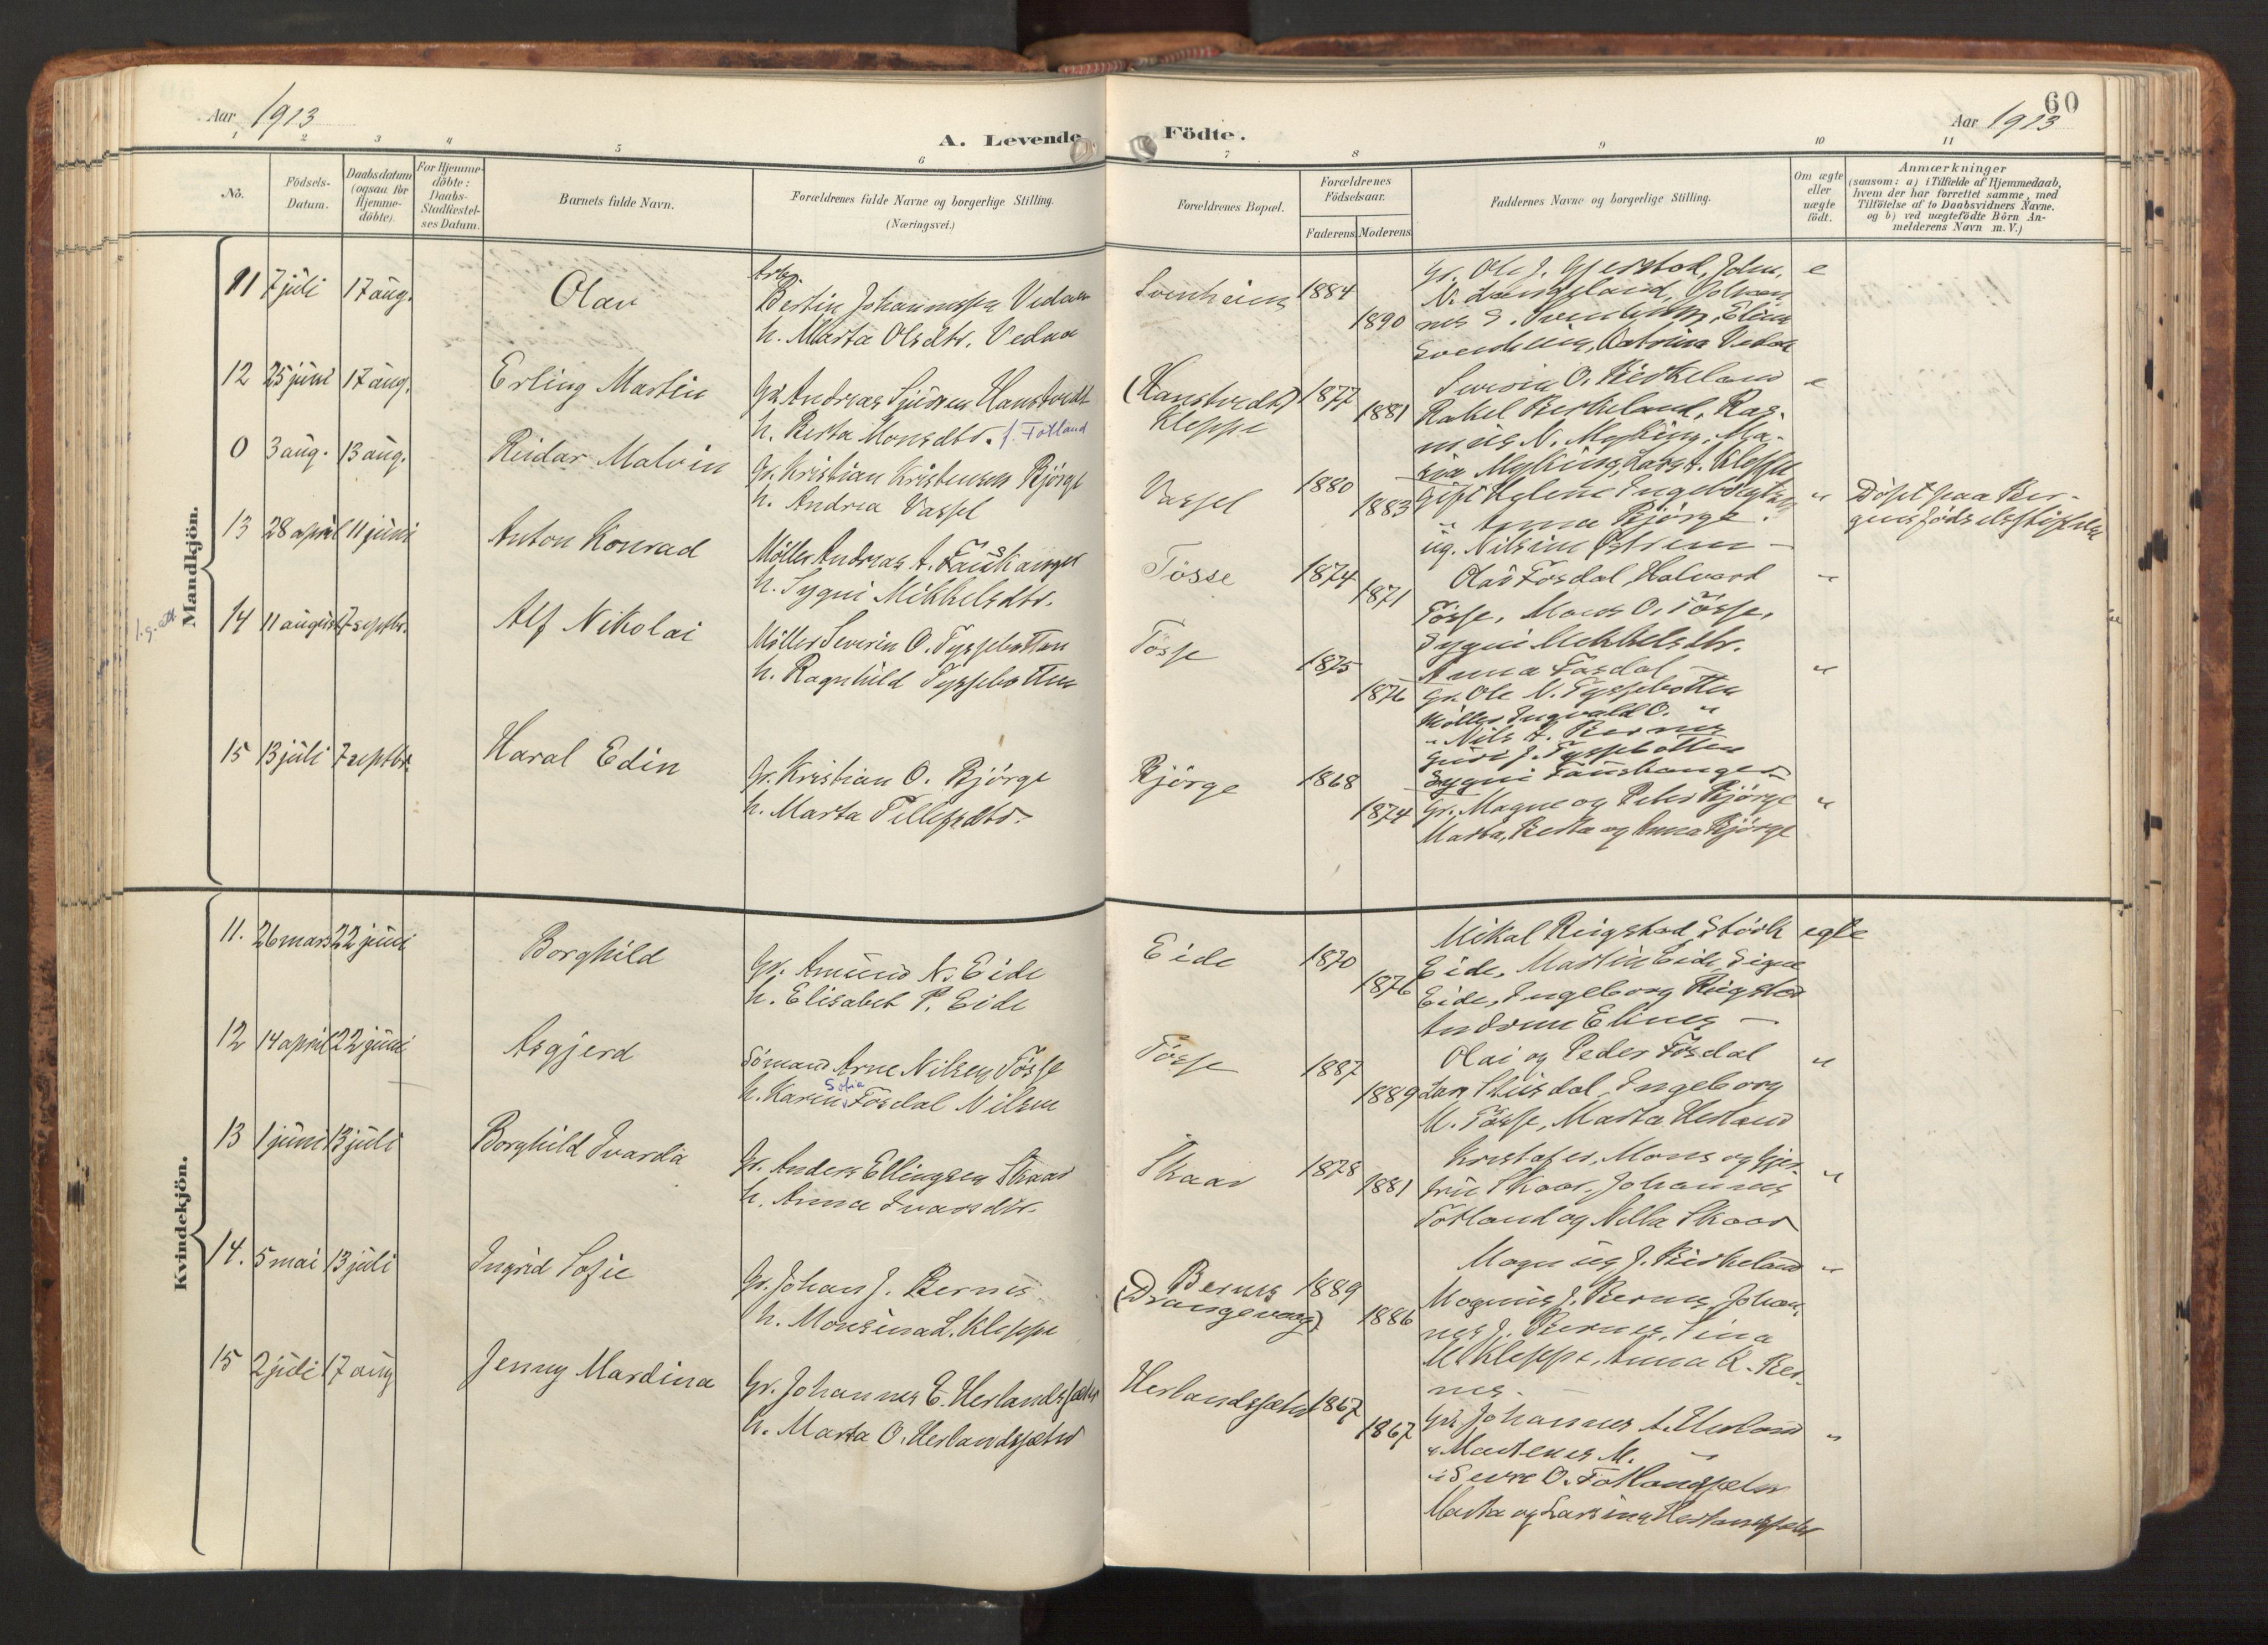 60
Aar 1913
A. Levende
Födte.
Aar 1913
1 2 3 4 5 6 7 8 9 10 11
Nö.
Födsels-
Datum.
Daabsdatum
(ogsaa for
Hjemme-
döbte).
For Hjemme-
döbte:
Daabs-
Stadfæstel-
ses Datum.
Barnets fulde Navn.
Forældrenes fulde Navne og borgerlige Stilling.
(Næringsvei.)
Forældrenes Bopæl.
Forældrenes
Födselsaar.
Faderens.
Moderens.
Faddernes Navne og borgerlige Stilling.
Om ægte
eller
uægte
födt.
Anmærkninger
(saasom: a) i Tilfælde af Hjemmedaab,
hvem der har forrettet samme, med
Tilföielse af to Daabsvidners Navne,
og b) ved uægtefödte Börn An-
melderens Navn m. V.)
Mandkjön.
11 7 juli 17 aug. Olav
Arb.
Bertin Johannessen Vedaa
h. Marta Olsdtr. Vedaa
Svenheim 1884
1890
Gr. Ole J. Gjerstad, Johs.
N. Langeland, Johan
nes S. Svenheim, Elina
Svenheim, Katrina Vedaa
e
12 25 juni 17 aug. Erling Martin
Gr. Andreas Sjursen Hanstvedt
h. Berta Monsdtr. f. Fotland
(Hanstvedt)
Kleppe
1877
1881
Severin O. Birkeland
Rakel Birkeland, Ras-
mus N. Myking, Ma-
ria Myking, Lars A. Kleppe
e
0 3 aug. 13 aug. Reidar Malvin
Gr. Kristian Kristensen Bjørge
h. Andrea Vassel
Vassel 1880
1883
Gift Helene Ingebrigtsen
" Anna Bjørge.
ug. Nilsine Østrem -
"
Døpt paa Ber-
gens fødselsstiftelse
13 28 april 11 juni Anton Konrad
Møller Andreas A. Fauskanger
h. Sygni Mikkelsdtr.
Tösse 1874
1871
Olai Fosdal Halvard
Tösse, Mons O. Tösse,
Sygni Mikkelsdtr.
Anna Fosdal -
"
14 11 august 7 septbr. Alf Nikolai
Møller Severin O. Tyssebotten
h. Ragnhild Tyssebotten
Tösse
1875
1876
Gr. Ole N. Tyssebotten
Møller Ingvald O. "
" Nils A. Bernes
Guri J. Tyssebotten
Sygni Fauskanger
"
15 13 juli 7 septbr. Haral Edin
Gr. Kristian O. Bjørge
h. Marta Tellefsdtr.
Bjørge 1868
1874
Gr. Magne og Peder Bjørge
Marta, Berta og Anna Bjørge
"
Kvindekjön.
11. 26 mars 22 juni Borghild
Gr. Amund N. Eide
h. Elisabet P. Eide
Eide 1870
1876
Mikal Ringstad Størk
Eide, Martin Eide, Signe
Eide, Ingeborg Ringstad
Andrine Elines -
egte
12 14 april 22 juni Asgjerd
Sömand Arne Nilsen Tösse
Sofia
h. Karin Fosdal Nilsen
Tösse 1887
1889
Olai og Peder Fosdal
Lars Skuisdal, Ingeborg
M. Tösse, Marta Herland
"
13 1 juni 13 juli Borghild Ivarda
Gr. Anders Ellingsen Skaar
h. Anna Ivarsdtr.
Skaar 1878
1881
Kristofer, Mons og Gjer-
trud Skaar, Johannes
Fotland og Nilla Skaar
"
14. 5 mai 13 juli Ingrid Sofie
Gr. Johan J. Bernes
h. Monsina L. Kleppe
Bernes
(Drangevaag)
1889
1886
Magnus J. Birkeland
Magnus J. Bernes, Johan
nes J. Bernes, Sina
M Kleppe, Anna K. Ber-
nes -
"
15 2 juli 17 aug Jenny Mardina
Gr. Johannes E. Herlandsæter
h. Marta O. Herlandsæter
Herlandsæter 1867
1867
Gr. Johannes A. Herland
" Martenes M. "
" Sevre O. Fotlandsæter
Marta og Larsina Herlandsæter
"